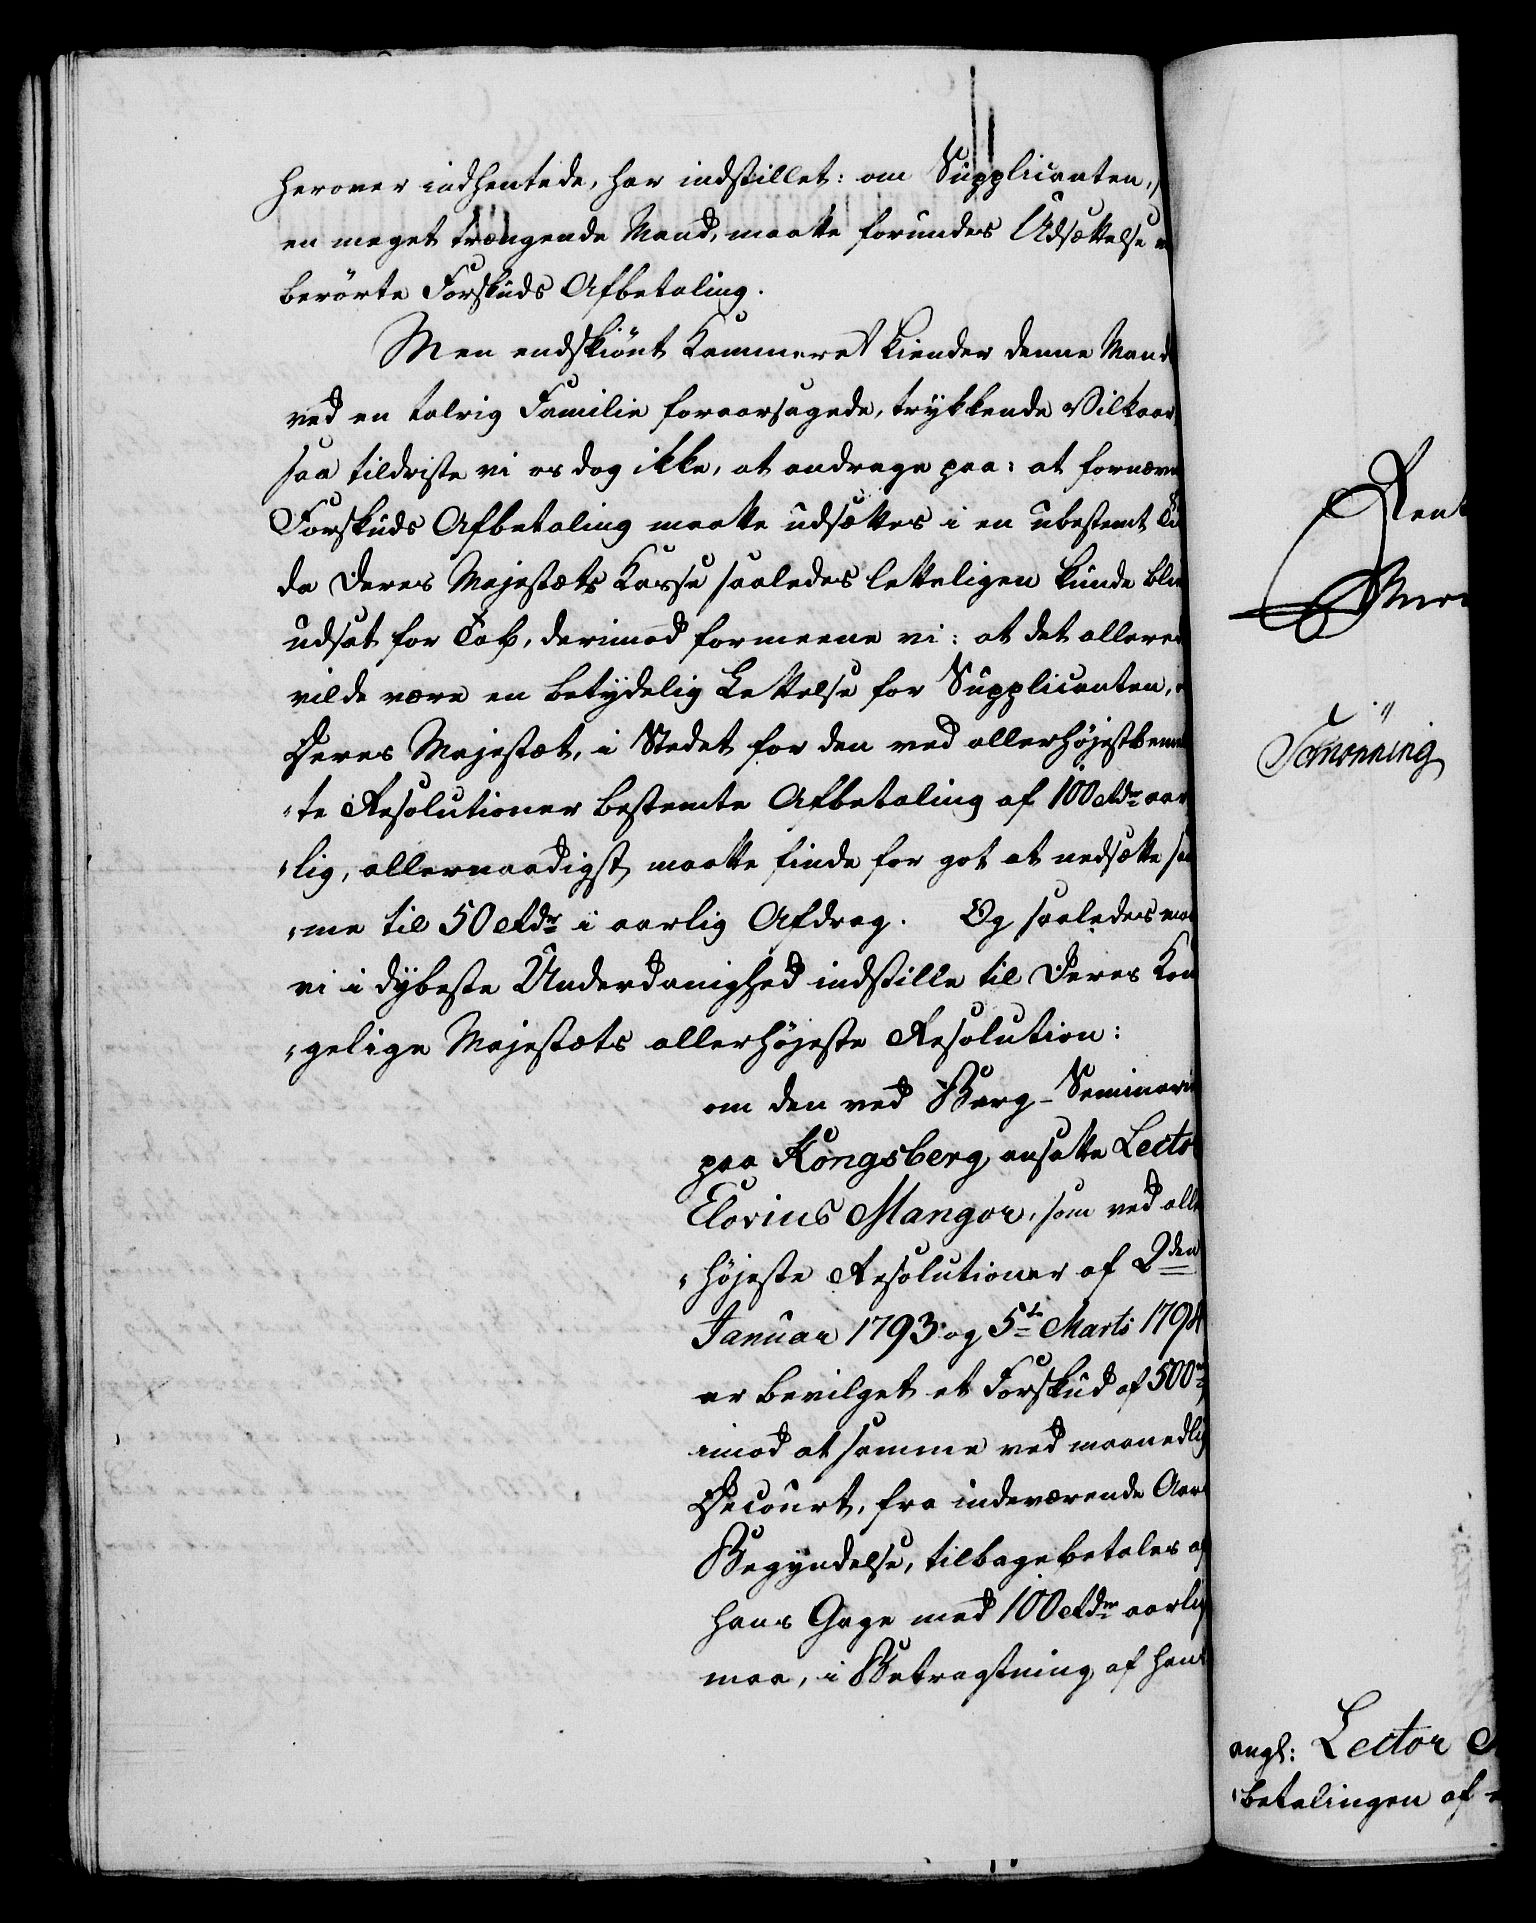 herover indhentede, har indstillet: om Supplicanten,
en meget trængende Mand, maatte forundes Udsættelse
berörte Forskuds Afbetaling.
Men endskiönt Kammeret kiender denne Mand
ved en talrig Familie foraarsagede, trykkende Vilkaar,
saa tildriste vi os dog ikke, at andrage paa: at fornævn
Forskuds Afbetaling maatte udsættes i en ubestemt Ti
da Deres Majestæts Kasse saaledes letteligen kunde bliv
udsat for Tab, derimod formeene vi: at det allered
vilde være en betydelig Lettelse for Supplicanten,
Deres Majestæt, i Stedet for den ved allerhøjestbemel
"te Resolutioner bestemte Afbetaling af 100 Rdr aar
"lig, allernaadigst maatte finde for got at nedsætte sa
"me til 50 Rdr i aarlig Afdrag. Og saaledes maa
vi i dybeste Underdanighed indstille til Deres Kon
"gelige Majestæts allerhøjeste Resolution:
om den ved Berg-Seminari
paa Kongsberg ansatte Lector
Elovius Mangor, som ved aller
"højeste Resolutioner af 2den
Januar 1793 og 5te Marts 1794
er bevilget et Forskud af 500 r
imod at samme ved maanedlig
Decourt, fra indeværende Aars
Begyndelse, tilbagebetales af
hans Gage med 100 Rdr aarlig
maa, i Betragtning af hans
Rent
Tømmøning
angl: Lector
"betalingen af